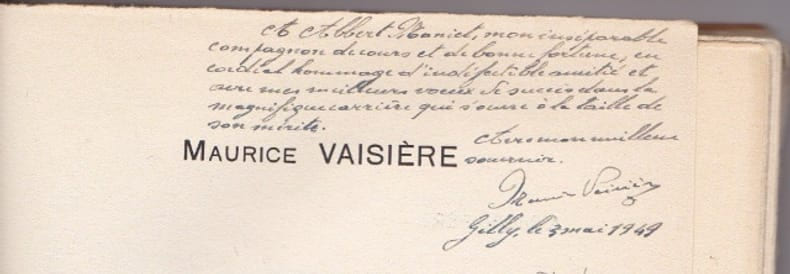 A Albert Maniet, mon inséparable
compagnon de cours et de bonne fortune, en
cordial hommage d'indéfectible amitié et
avec mes meilleurs voeux de succès dans la
magnifique carrière qui s'ouvre à la taille de
son mérite.
Avec mon meilleur
souvenir.
MAURICE VAISIÈRE
Maurice Vaisière
Gilly, le 3 mai 1949